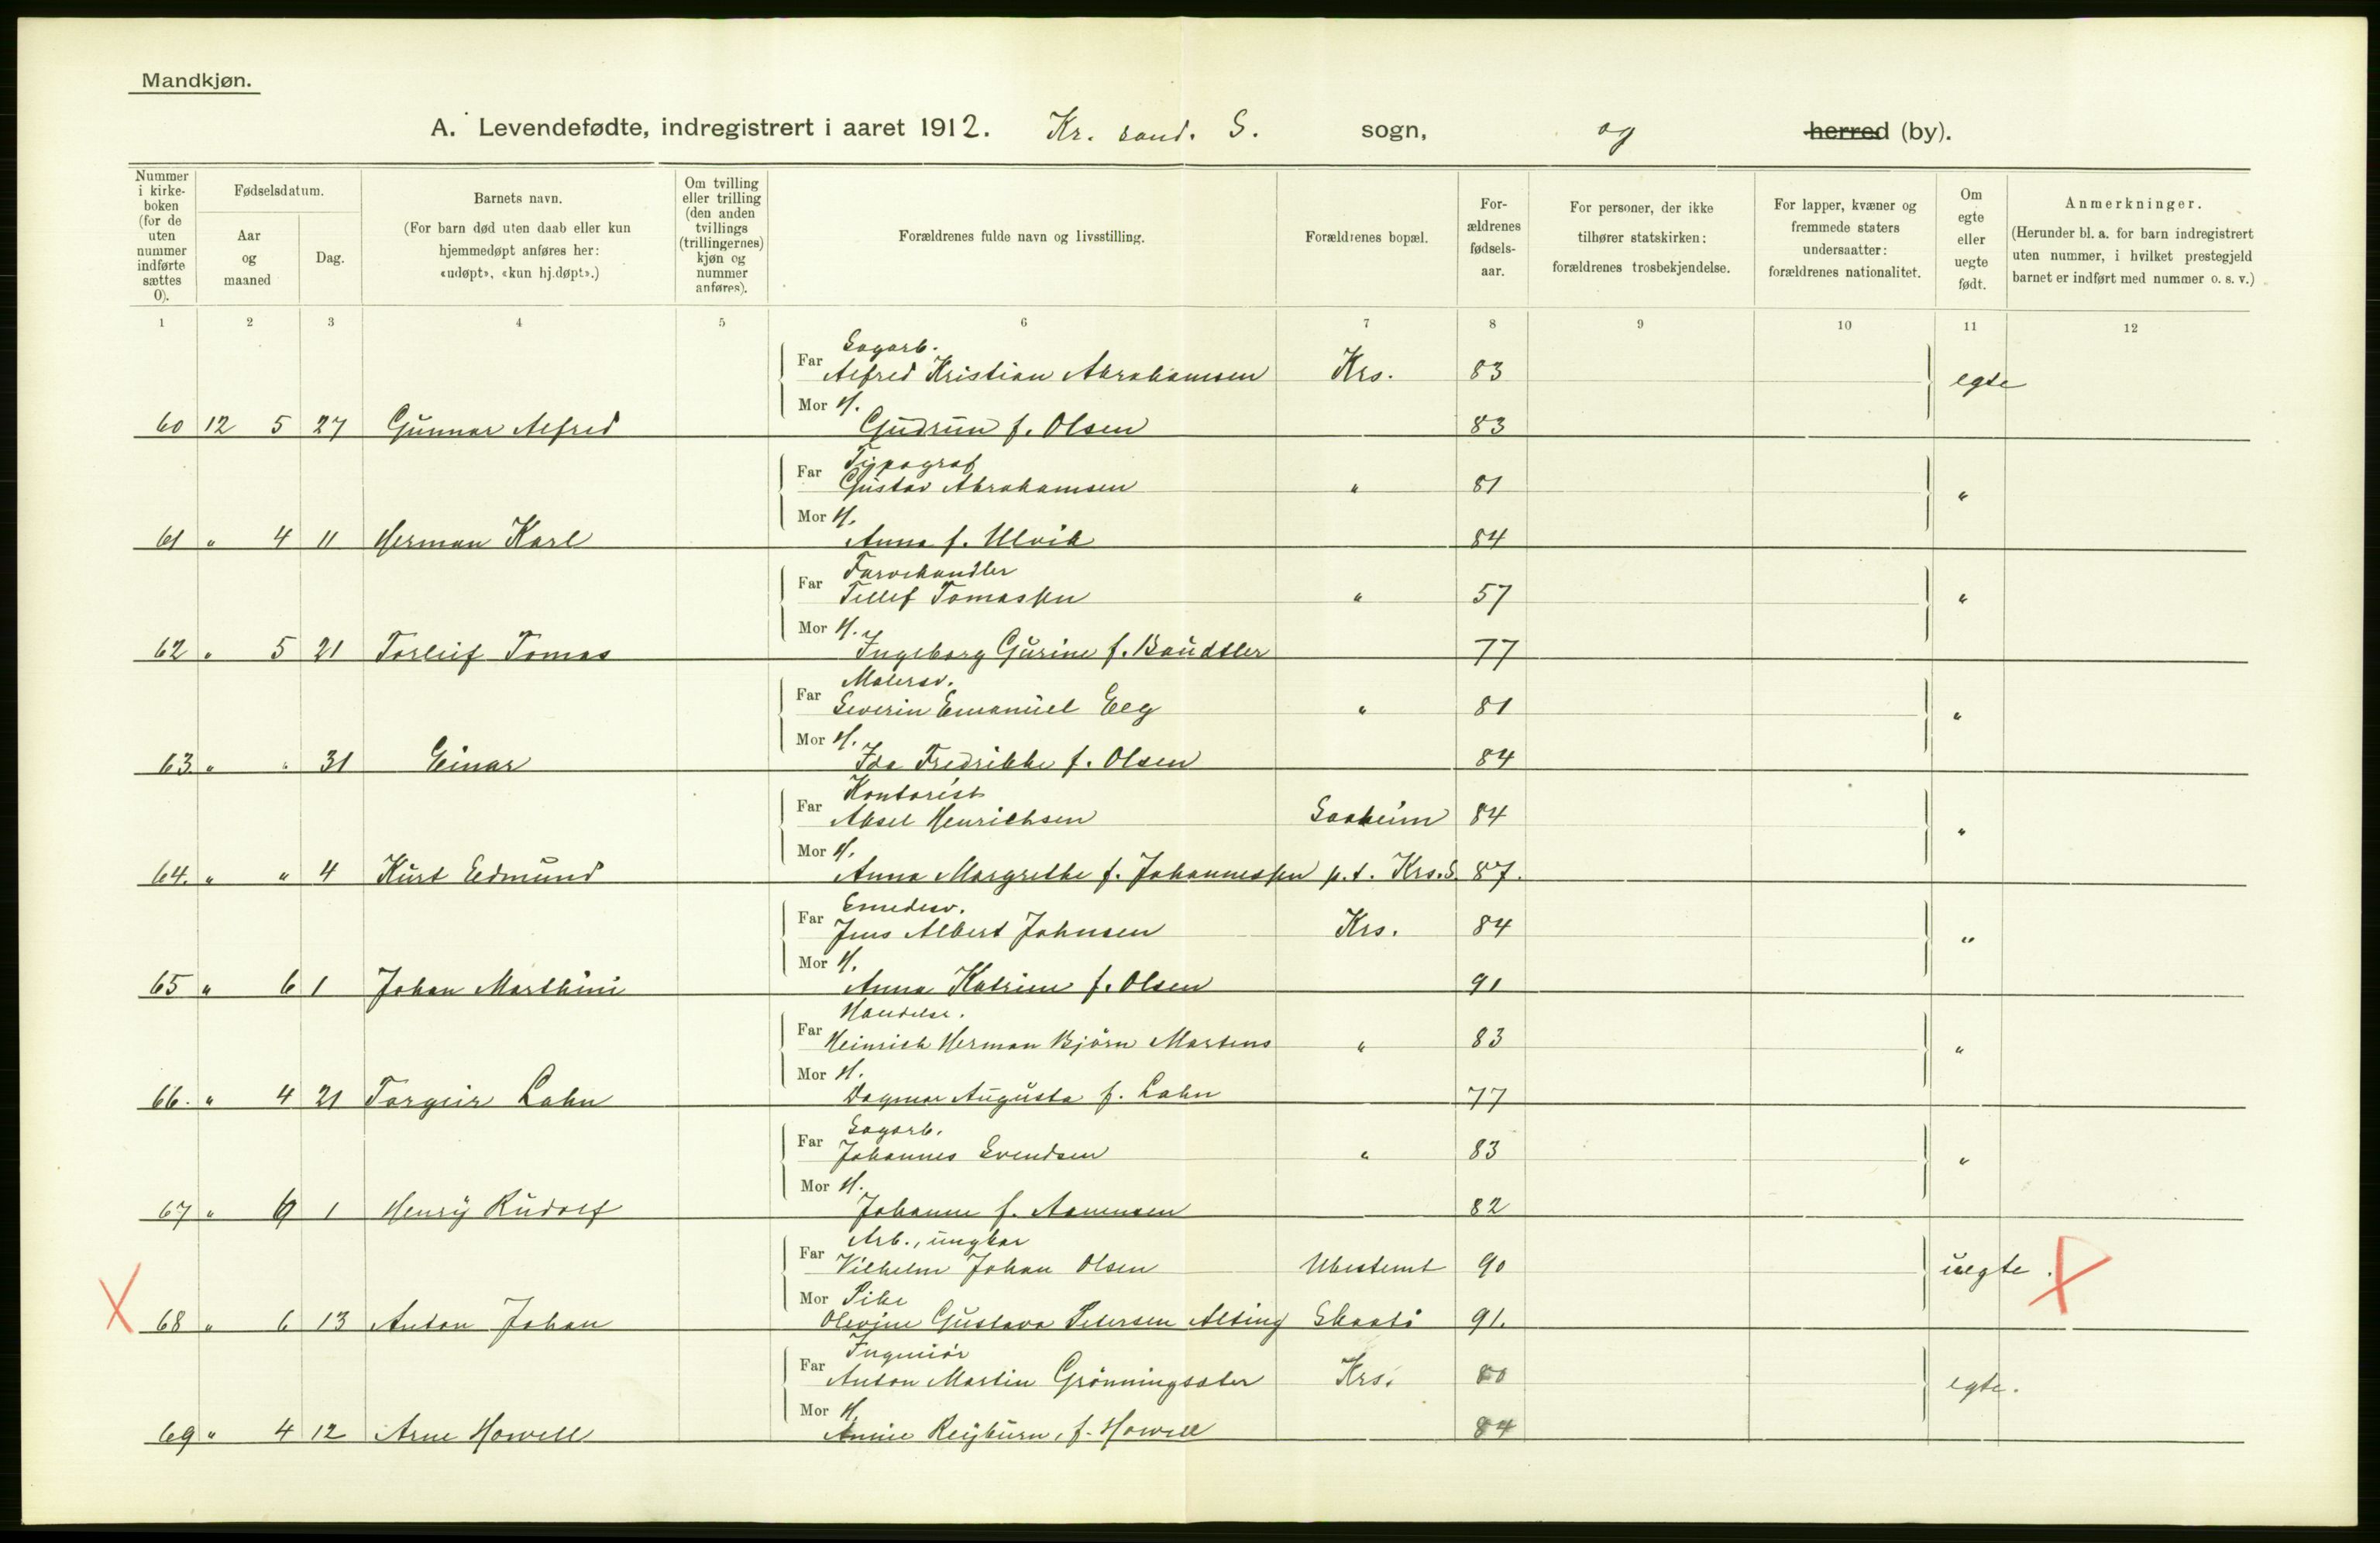 Mandkjøn.
A. Levendefødte, indregistrert i aaret 1912. Kr. sand. S. sogn, og herred (by).
Nummer i kirkeboken (for de uten nummer indførte sættes 0).
Fødselsdatum.
Aar og maaned
Dag.
Barnets navn.
(For barn død uten daab eller kun hjemmedøpt anføres her: «udøpt», «kun hj.døpt».)
Om tvilling eller trilling (den anden tvillings (trillingernes) kjøn og nummer anføres).
Forældrenes fulde navn og livsstilling.
Forældrenes bopæl.
Forældrenes fødselsaar.
For personer, der ikke tilhører statskirken: forældrenes trosbekjendelse.
For lapper, kvæner og fremmede staters undersaatter: forældrenes nationalitet.
Om egte eller uegte født.
Anmerkninger.
(Herunder bl. a. for barn indregistrert uten nummer, i hvilket prestegjeld barnet er indført med nummer o. s. v.)
1 2 3 4 5 6 7 8 9 10 11 12
Sagarb.
Far Alfred Kristian Abrahamsen Krs. 83 egte
Mor H.
60 12 5 27 Gunnar Alfred Gudrun f. Olsen 83
Typograf
Far Gustav Abrahamsen " 81 "
Mor H.
61 " 4 11 Herman Karl Anna f. Ulvik 84
Farvehandler
Far Tellef Tomassen " 57 "
Mor H.
62 " 5 21 Torleif Tomas Ingeborg Gurine f. Baudtler 77
Malersv.
Far Severin Emanuel Eeg " 81 "
Mor H.
63. " " 31 Einar Ida Fredrikke f. Olsen 84
Kontorist
Far Aksel Henrichsen Saaheim 84 "
Mor H.
64. " " 4 Kurt Edmund Anna Margrethe f. Johannessen p.t. Krs.S. 87.
Smedesv.
Far Jens Albert Johnsen Krs. 84 "
Mor H.
65 " 6 1 Johan Marthini Anna Katrine f. Olsen 91
Handelsr.
Far Heinrich Herman Bjørn Martens " 83 "
Mor H.
66. " 4 21 Torgeir Lahn Dagmar Augusta f. Lahn 77
Sagarb.
Far Johannes Svendsen " 83 "
Mor H.
67 " 1 Henry Rudolf Johanne f. Aanensen 82
Arb., ungkar
Far Vilhelm Johan Olsen Ubestemt 90 uegte.
Mor Pike
68 " 6 13 Anton Johan Olevine Gustava Petersen Alting Skaatø 91.
Ingeniør
Far Anton Martin Grønningsæter Krs. 80 egte.
Mor H.
69 " 4 12 Arne Howell Annie Reyburn, f. Howell 84